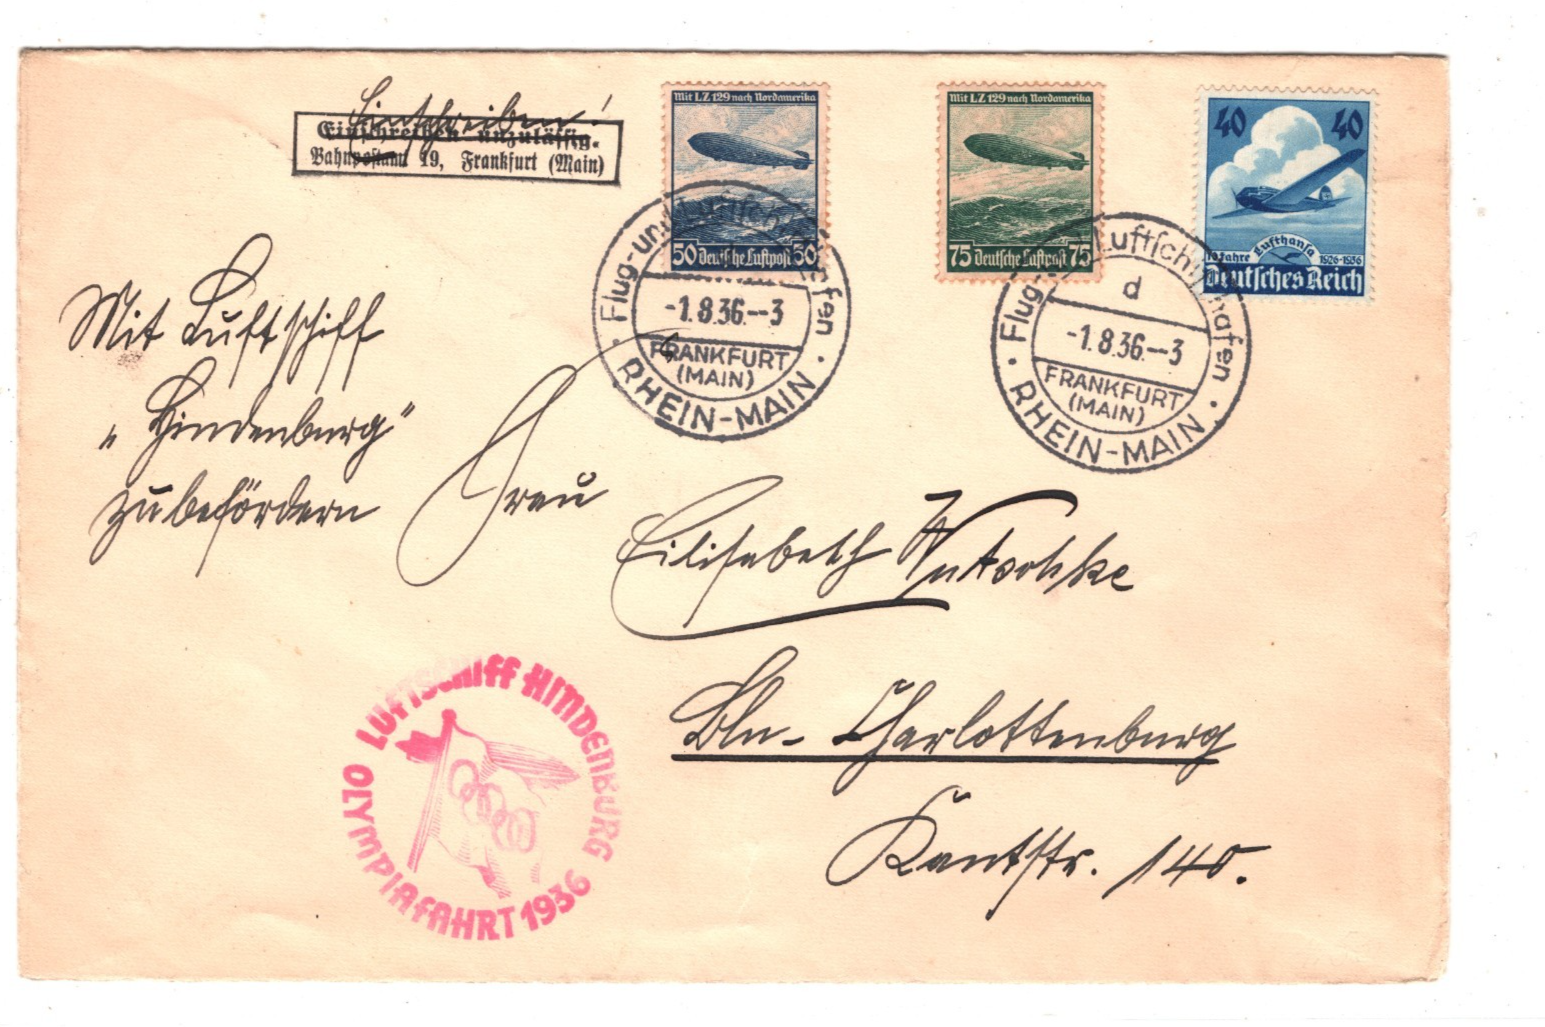 Einschreiben!
Einschreiben unzulässig.
Bahnpostamt 19, Frankfurt (Main)
Mit LZ 129 nach Nordamerika
50 Deutsche Luftpost 50
Mit LZ 129 nach Nordamerika
75 Deutsche Luftpost 75
40 40
10 Jahre Lufthansa 1926-1936
Deutsches Reich
Flug- und Luftschiffhafen
-1.8.36.--3
FRANKFURT
(MAIN)
RHEIN-MAIN
Flug- und Luftschiffhafen
d
-1.8.36.--3
FRANKFURT
(MAIN)
RHEIN-MAIN
Mit Luftschiff
„Hindenburg"
zu befördern
Frau
Elisabeth
Bln- Charlottenburg
Kantstr. 140.
LUFTSCHIFF HINDENBURG
OLYMPIAFAHRT 1936